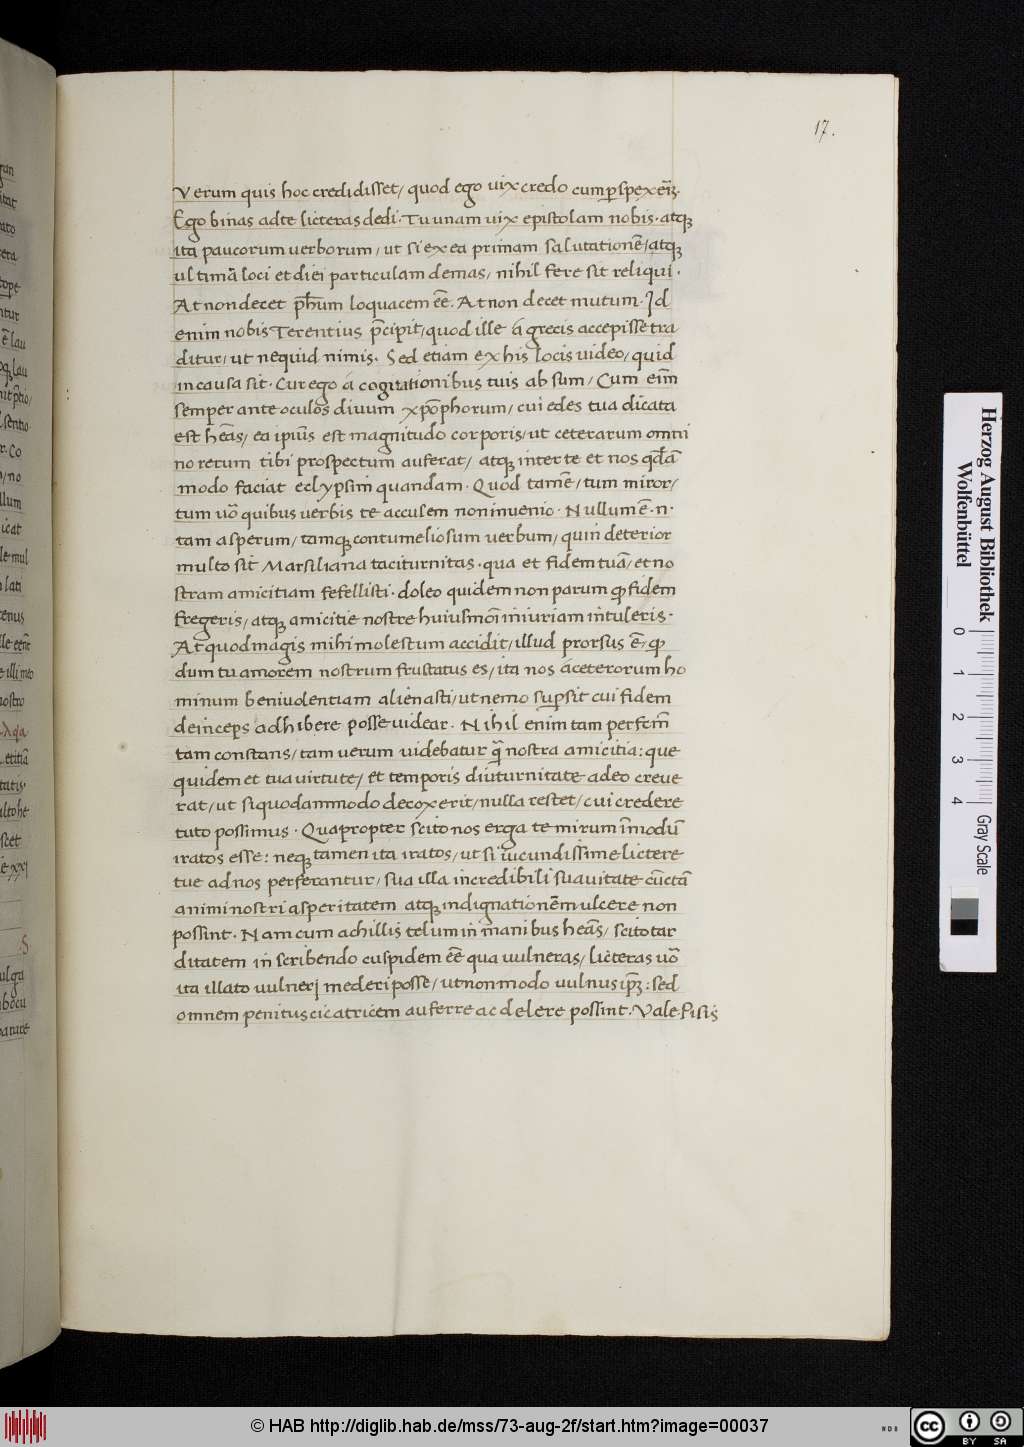 17.
Verum quis hoc credidisset/ quod ego uix credo cum ꝑspexeĩꝫ.
Ego binas ad te licteras dedi. Tu unam uix epistolam nobis. atqꝫ
ita paucorum uerborum/ ut si ex ea primam salutationẽ/ atqꝫ
ultimã loci et diei particulam demas/ nihil fere sit reliqui.
At non decet ph̃um loquacem eẽ. At non decet mutum. Id
enim nobis Terentius p̃cipit/ quod ille á grecis accepisse tra
ditur/ ut nequid nimis. Sed etiam ex his locis uideo/ quid
in causa sit. Cur ego á cogitationibus tuis absum/ Cum eĩm
semper ante oculos diuum xp̃ophorum/ cui edes tua dicata
est heãs/ ea ipiũs est magnitudo corporis/ ut ceterarum omni
no rerum tibi prospectum auferat/ atqꝫ inter te et nos qd̃ã
modo faciat eclypsim quandam. Quod tamẽ/ tum miror/
tum uõ quibus uerbis te accusem non inuenio. Nullum ẽ. n.
tam asperum/ tamqꝫ contumeliosum uerbum/ quin deterior
multo sit Marsiliana taciturnitas. qua et fidem tuã/ et no
stram amicitiam fefellisti. doleo quidem non parum ꝙ fidem
fregeris/ atqꝫ amicitie nostre huiusmõi iniuriam intuleris.
At quod magis mihi molestum accidit/ illud prorsus ẽ/ ꝙ
dum tu amorem nostrum frustatus es/ ita nos á ceterorum ho
minum beniuolentiam alienasti/ ut nemo suꝑsit cui fidem
deinceps adhibere posse uidear. Nihil enim tam perfcm̃
tam constans/ tam uerum uidebatur q̃ nostra amicitia: que
quidem et tua uirtute/ et temporis diuturnitate adeo creue
rat/ ut si quodammodo decoxerit/ nulla restet/ cui credere
tuto possimus. Quapropter scito nos erga te mirum ĩmodũ
iratos esse: neqꝫ tamen ita iratos/ ut si iucundissime lictere
tue ad nos perferantur/ sua illa incredibili suauitate cũctã
animi nostri asperitatem atqꝫ indignationẽm ulcere non
possint. Nam cum achillis telum in m̃anibus heãs/ scito tar
ditatem in scribendo cuspidem eẽ qua uulneras/ licteras uõ
ita illato uulneri mederi posse/ ut non modo uulnus ip̃ꝫ: sed
omnem penitus cicatricem auferre ac delere possint. Vale. Pisis
Herzog August Bibliothek
Wolfenbüttel
0 1 2 3 4
Gray Scale
© HAB http://diglib.hab.de/mss/73-aug-2f/start.htm?image=00037
WDB
cc BY SA